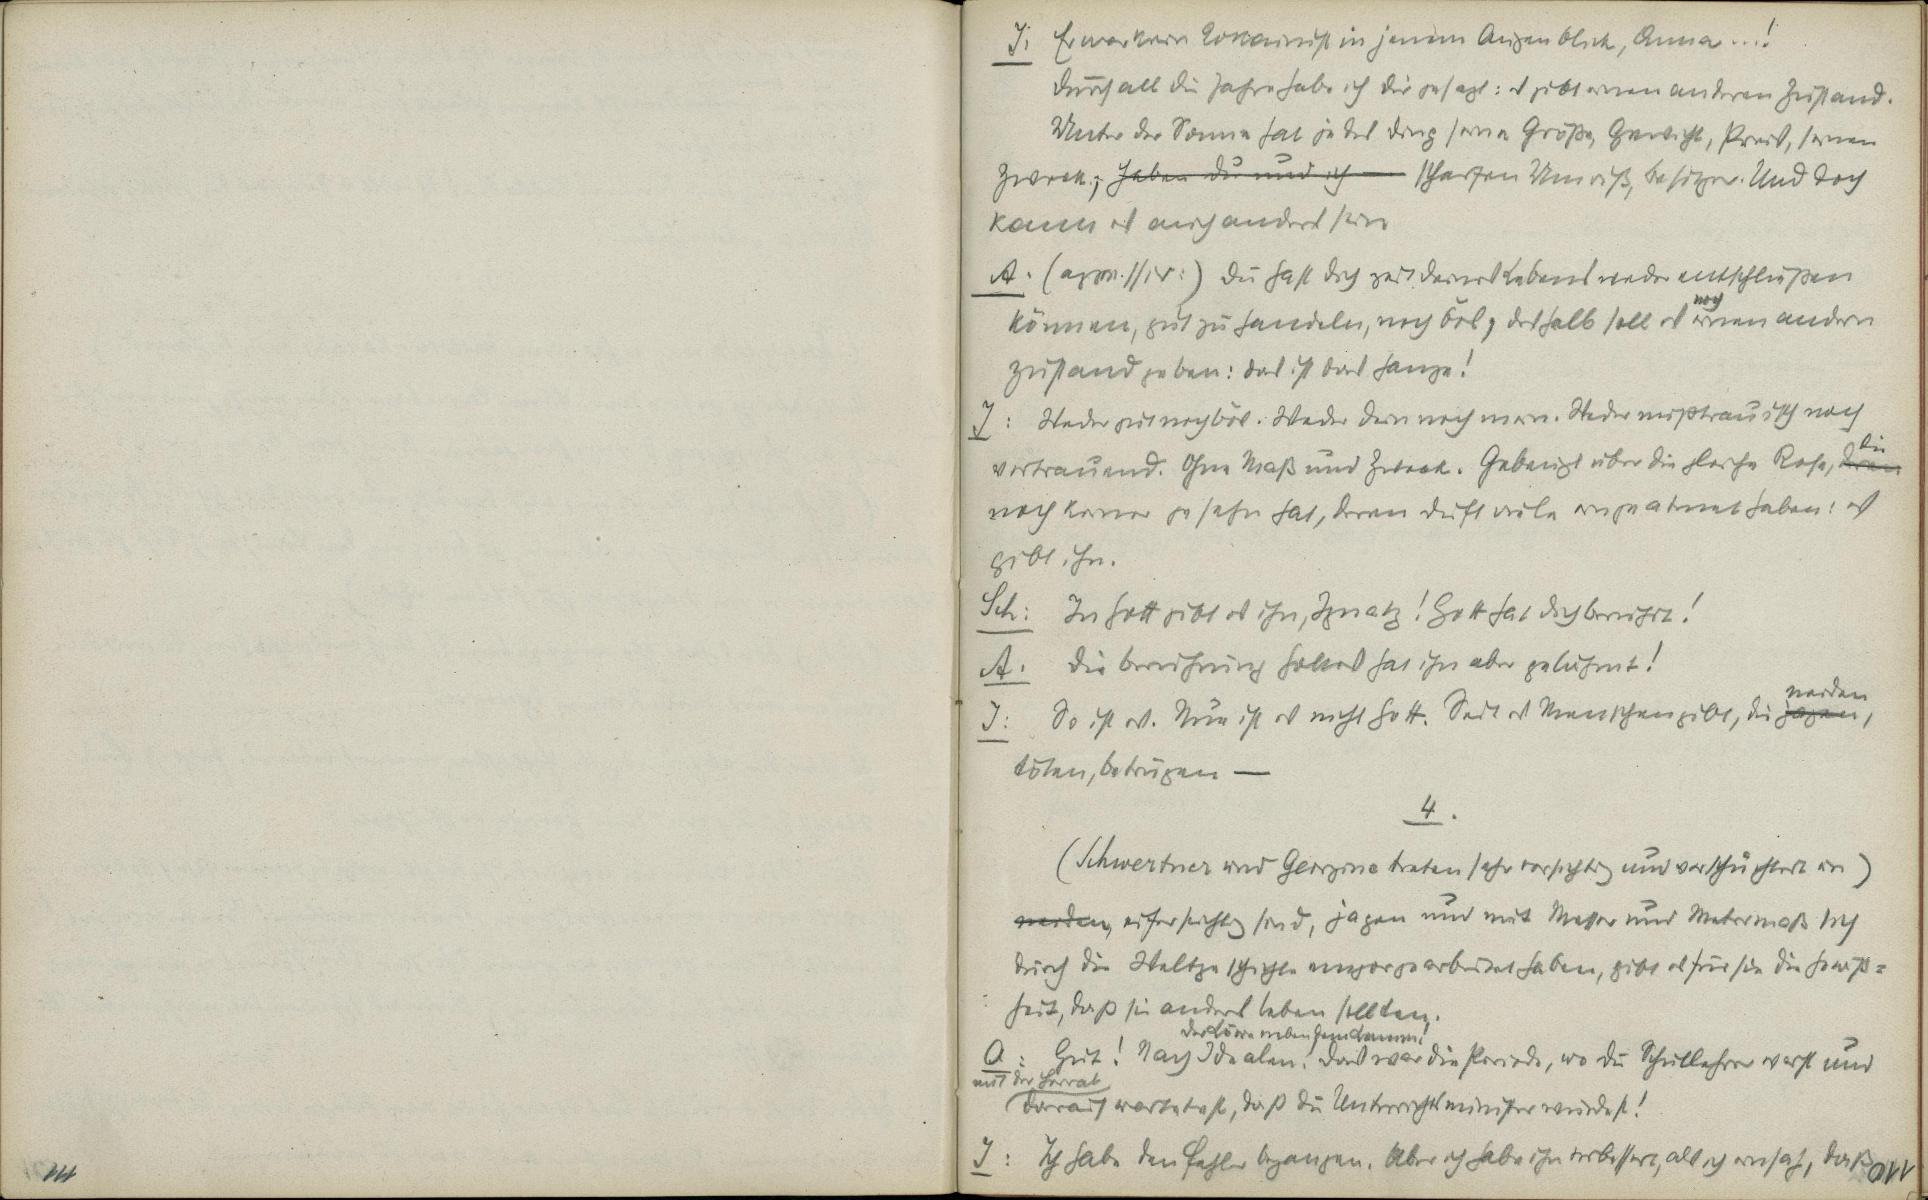 J: Er war kein Kokainist in jenem Augenblick, Anna ...!
Durch all die Jahre habe ich dir gesagt: es gibt einen anderen Zustand.
Unter der Sonne hat jedes Ding seine Größe, Gewicht, Preis, seinen
Zweck; haben du und ich — scharfen Umriß, Besitzer. Und doch
kann es auch anders sein
A: (aggressiv:) Du hast dich zeit deines Lebens weder entschließen
noch
können, gut zu handeln, noch bös, deshalb soll es einen andern
Zustand geben: das ist das Ganze!
J: Weder gut noch bös. Weder dein noch mein. Weder mißtrauisch noch
die
vertrauend. Ohne Maß und Zweck. Gebeugt über die gleiche Rose, deren
noch keiner gesehn hat, deren Duft viele eingeatmet haben: es
gibt ihn.
Sch: In Gott gibt es ihn, Ignatz! Gott hat dich berührt!
A: Die Berührung Gottes hat ihn aber gelähmt!
neiden
J: So ist es. Nur ist es nicht Gott. Seit es Menschen gibt, die jagen,
töten, betrügen —
4.
(Schwertner und Georgine treten sehr vorsichtig und verschüchtert ein)
neiden, eifersüchtig sind, jagen und mit Messer und Metermaß sich
durch die Weltgeschichte emporgearbeitet haben, gibt es für sie die Gewiß=
heit, daß sie anders leben sollten.
der Löwe neben dem Lamm!
A: Gut! Nach Idealen! Das war die Periode, wo du Schullehrer warst und
mit der Heirat
darauf wartetest, daß du Unterrichtsminister würdest!
J: Ich habe den Fehler begangen. Aber ich habe ihn verbessert, als ich einsah, daß